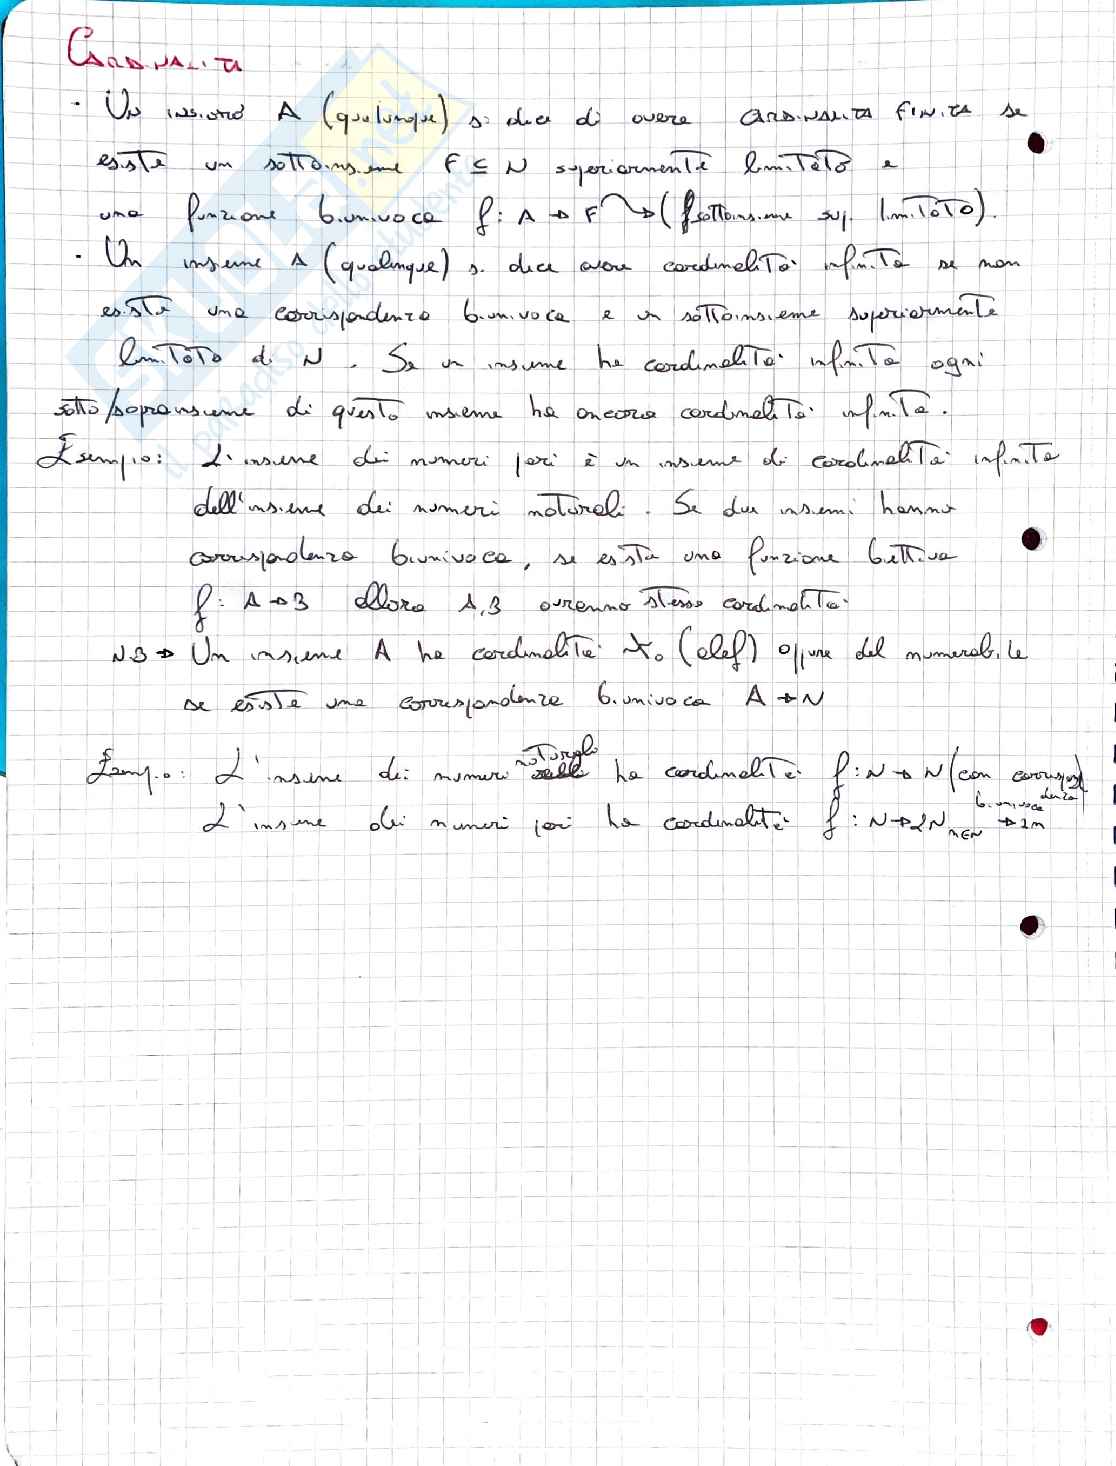 CARDINALITÀ
· Un insieme A (qualunque) si dice di avere CARDINALITÀ FINITA se
esiste un sottoinsieme F ⊆ N superiormente limitato e
una funzione biunivoca f: A → F → (f sottoinsieme sup. limitato).
· Un insieme A (qualinque) si dice avere cardinalità infinita se non
esiste una corrispondenza biunivoca e un sottoinsieme superiormente
limitato di N. Se un insieme ha cardinalità infinita ogni
sotto/soprainsieme di questo insieme ha ancora cardinalità infinita.
Esempio: L'insieme dei numeri pari è un insieme di cardinalità infinita
dell'insieme dei numeri naturali. Se due insiemi hanno
corrispondenza biunivoca, se esiste una funzione biettiva
f: A → B allora A,B avranno stessa cardinalità.
NB → Un insieme A ha cardinalità ℵ₀ (alef) oppure del numerabile
se esiste una corrispondenza biunivoca A → N
Esempio: L'insieme dei numeri naturali ha cardinalità f: N → N (con corrispondenza
biunivoca)
L'insieme dei numeri pari ha cardinalità f: N → 2N n∈N → 2n
SKUOLA.net
il paradiso dello studente